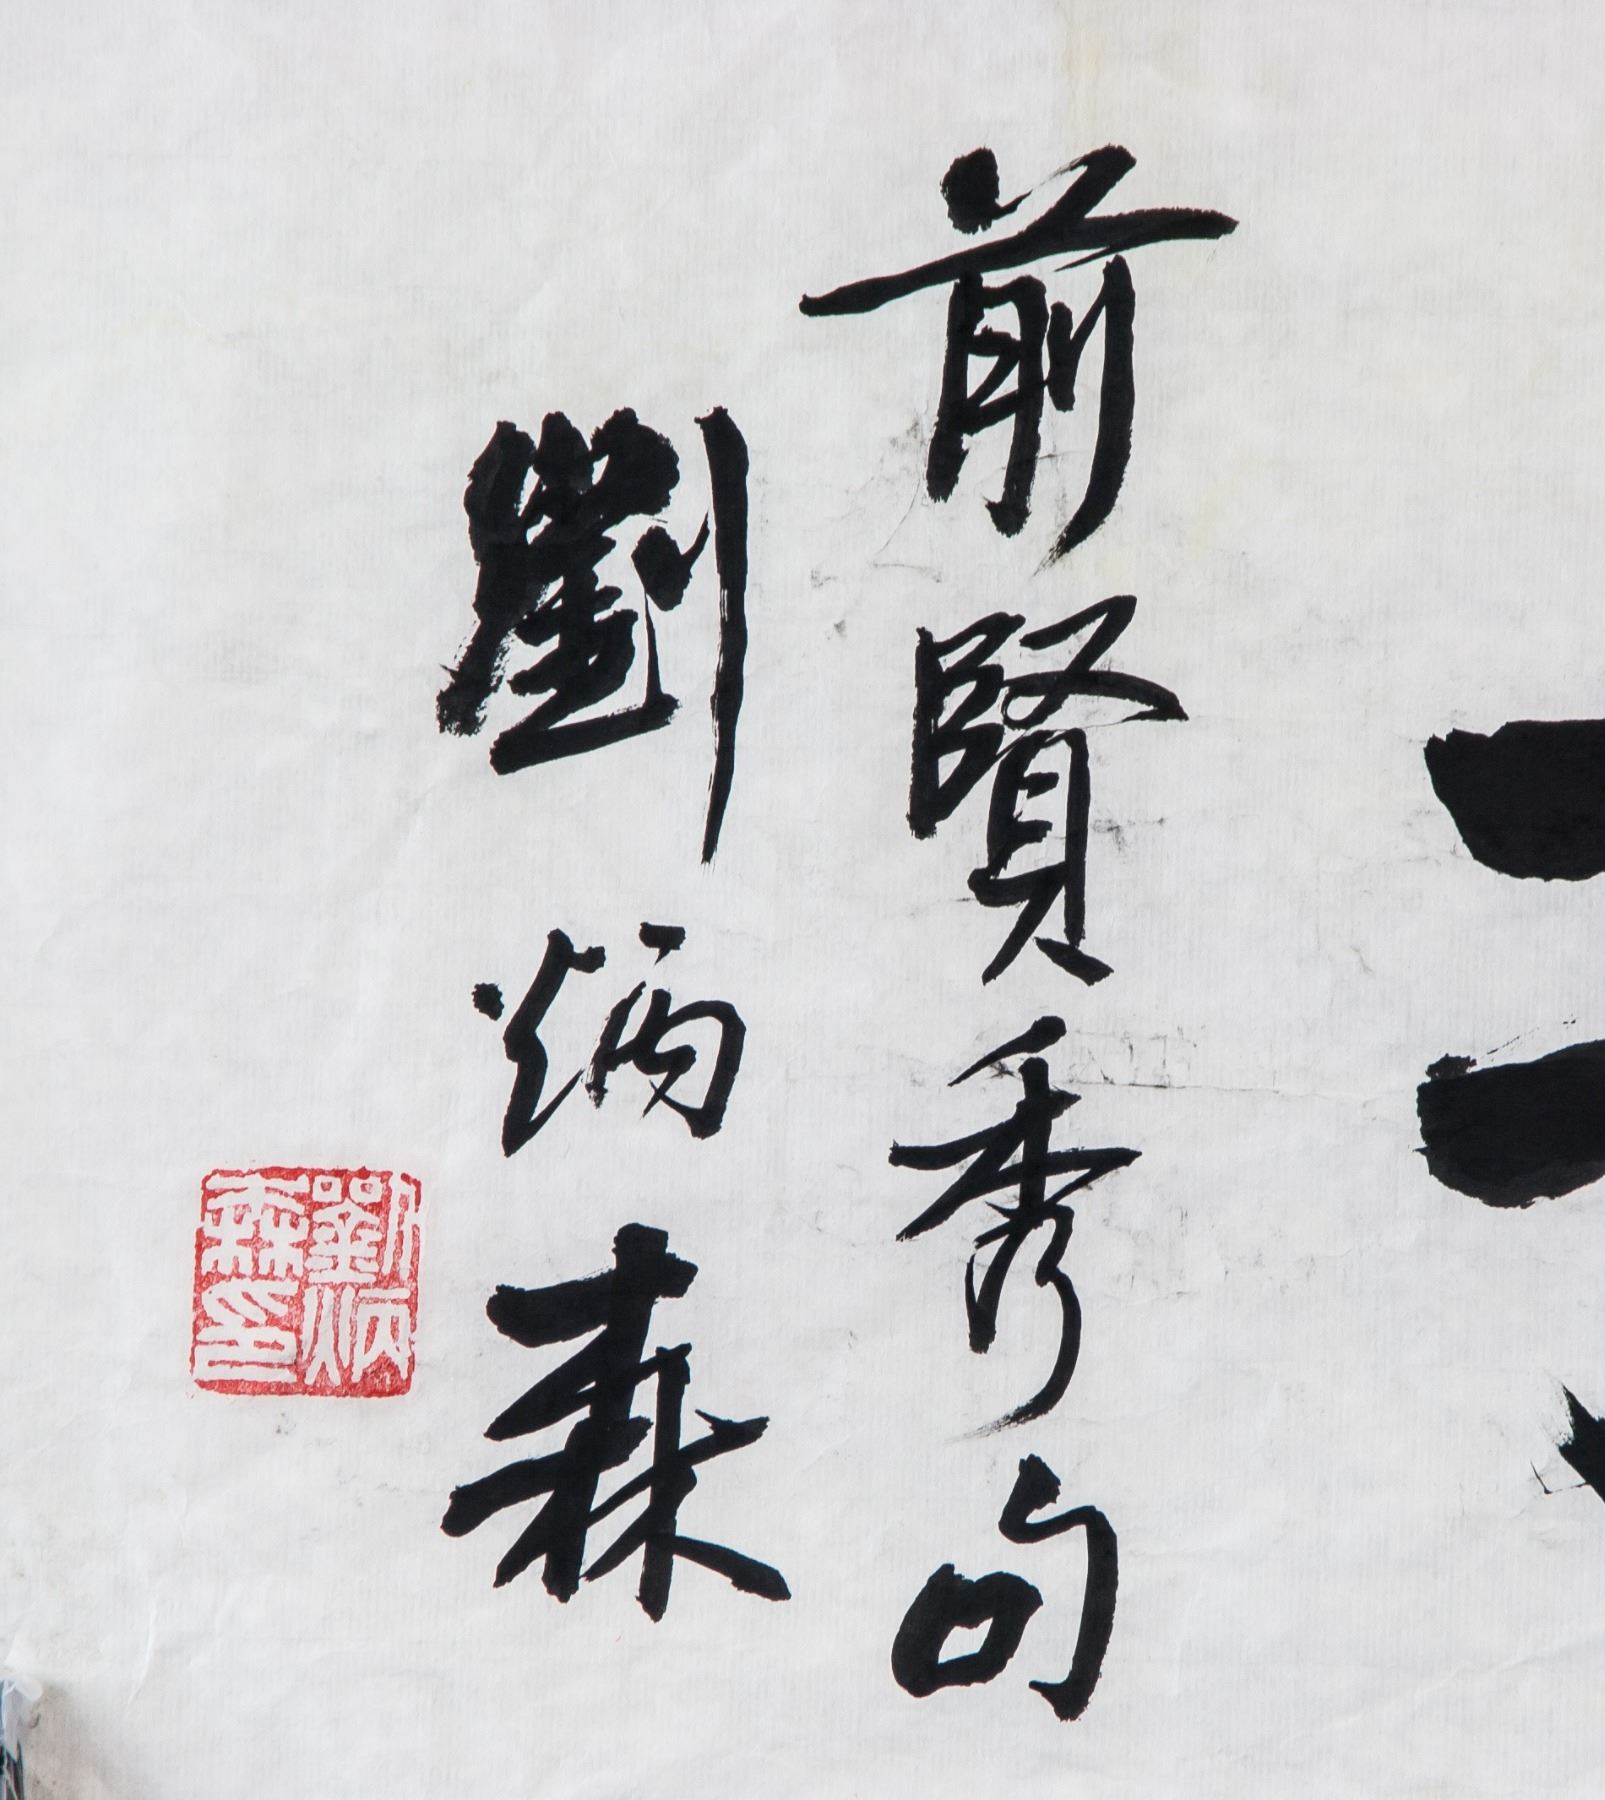 前賢秀句
劉炳森
劉炳
森印